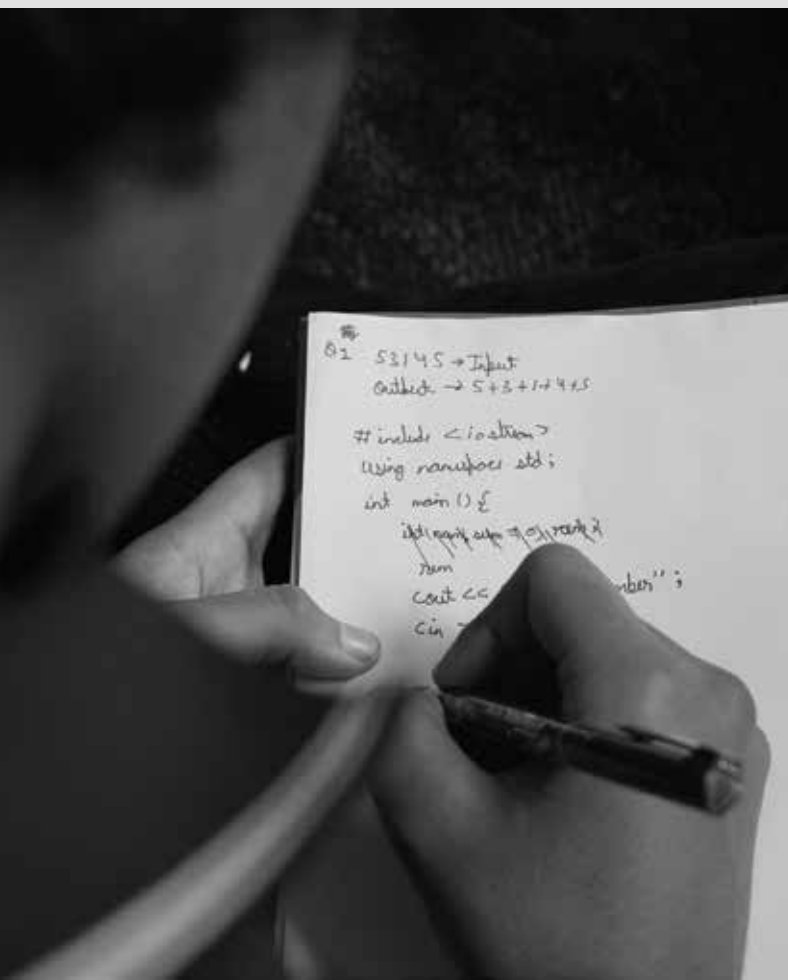 Q1 53145 → Input
Output → 5+3+1+4+5
#include <iostream>
using namespace std;
int main () {
num
cout << mber";
cin